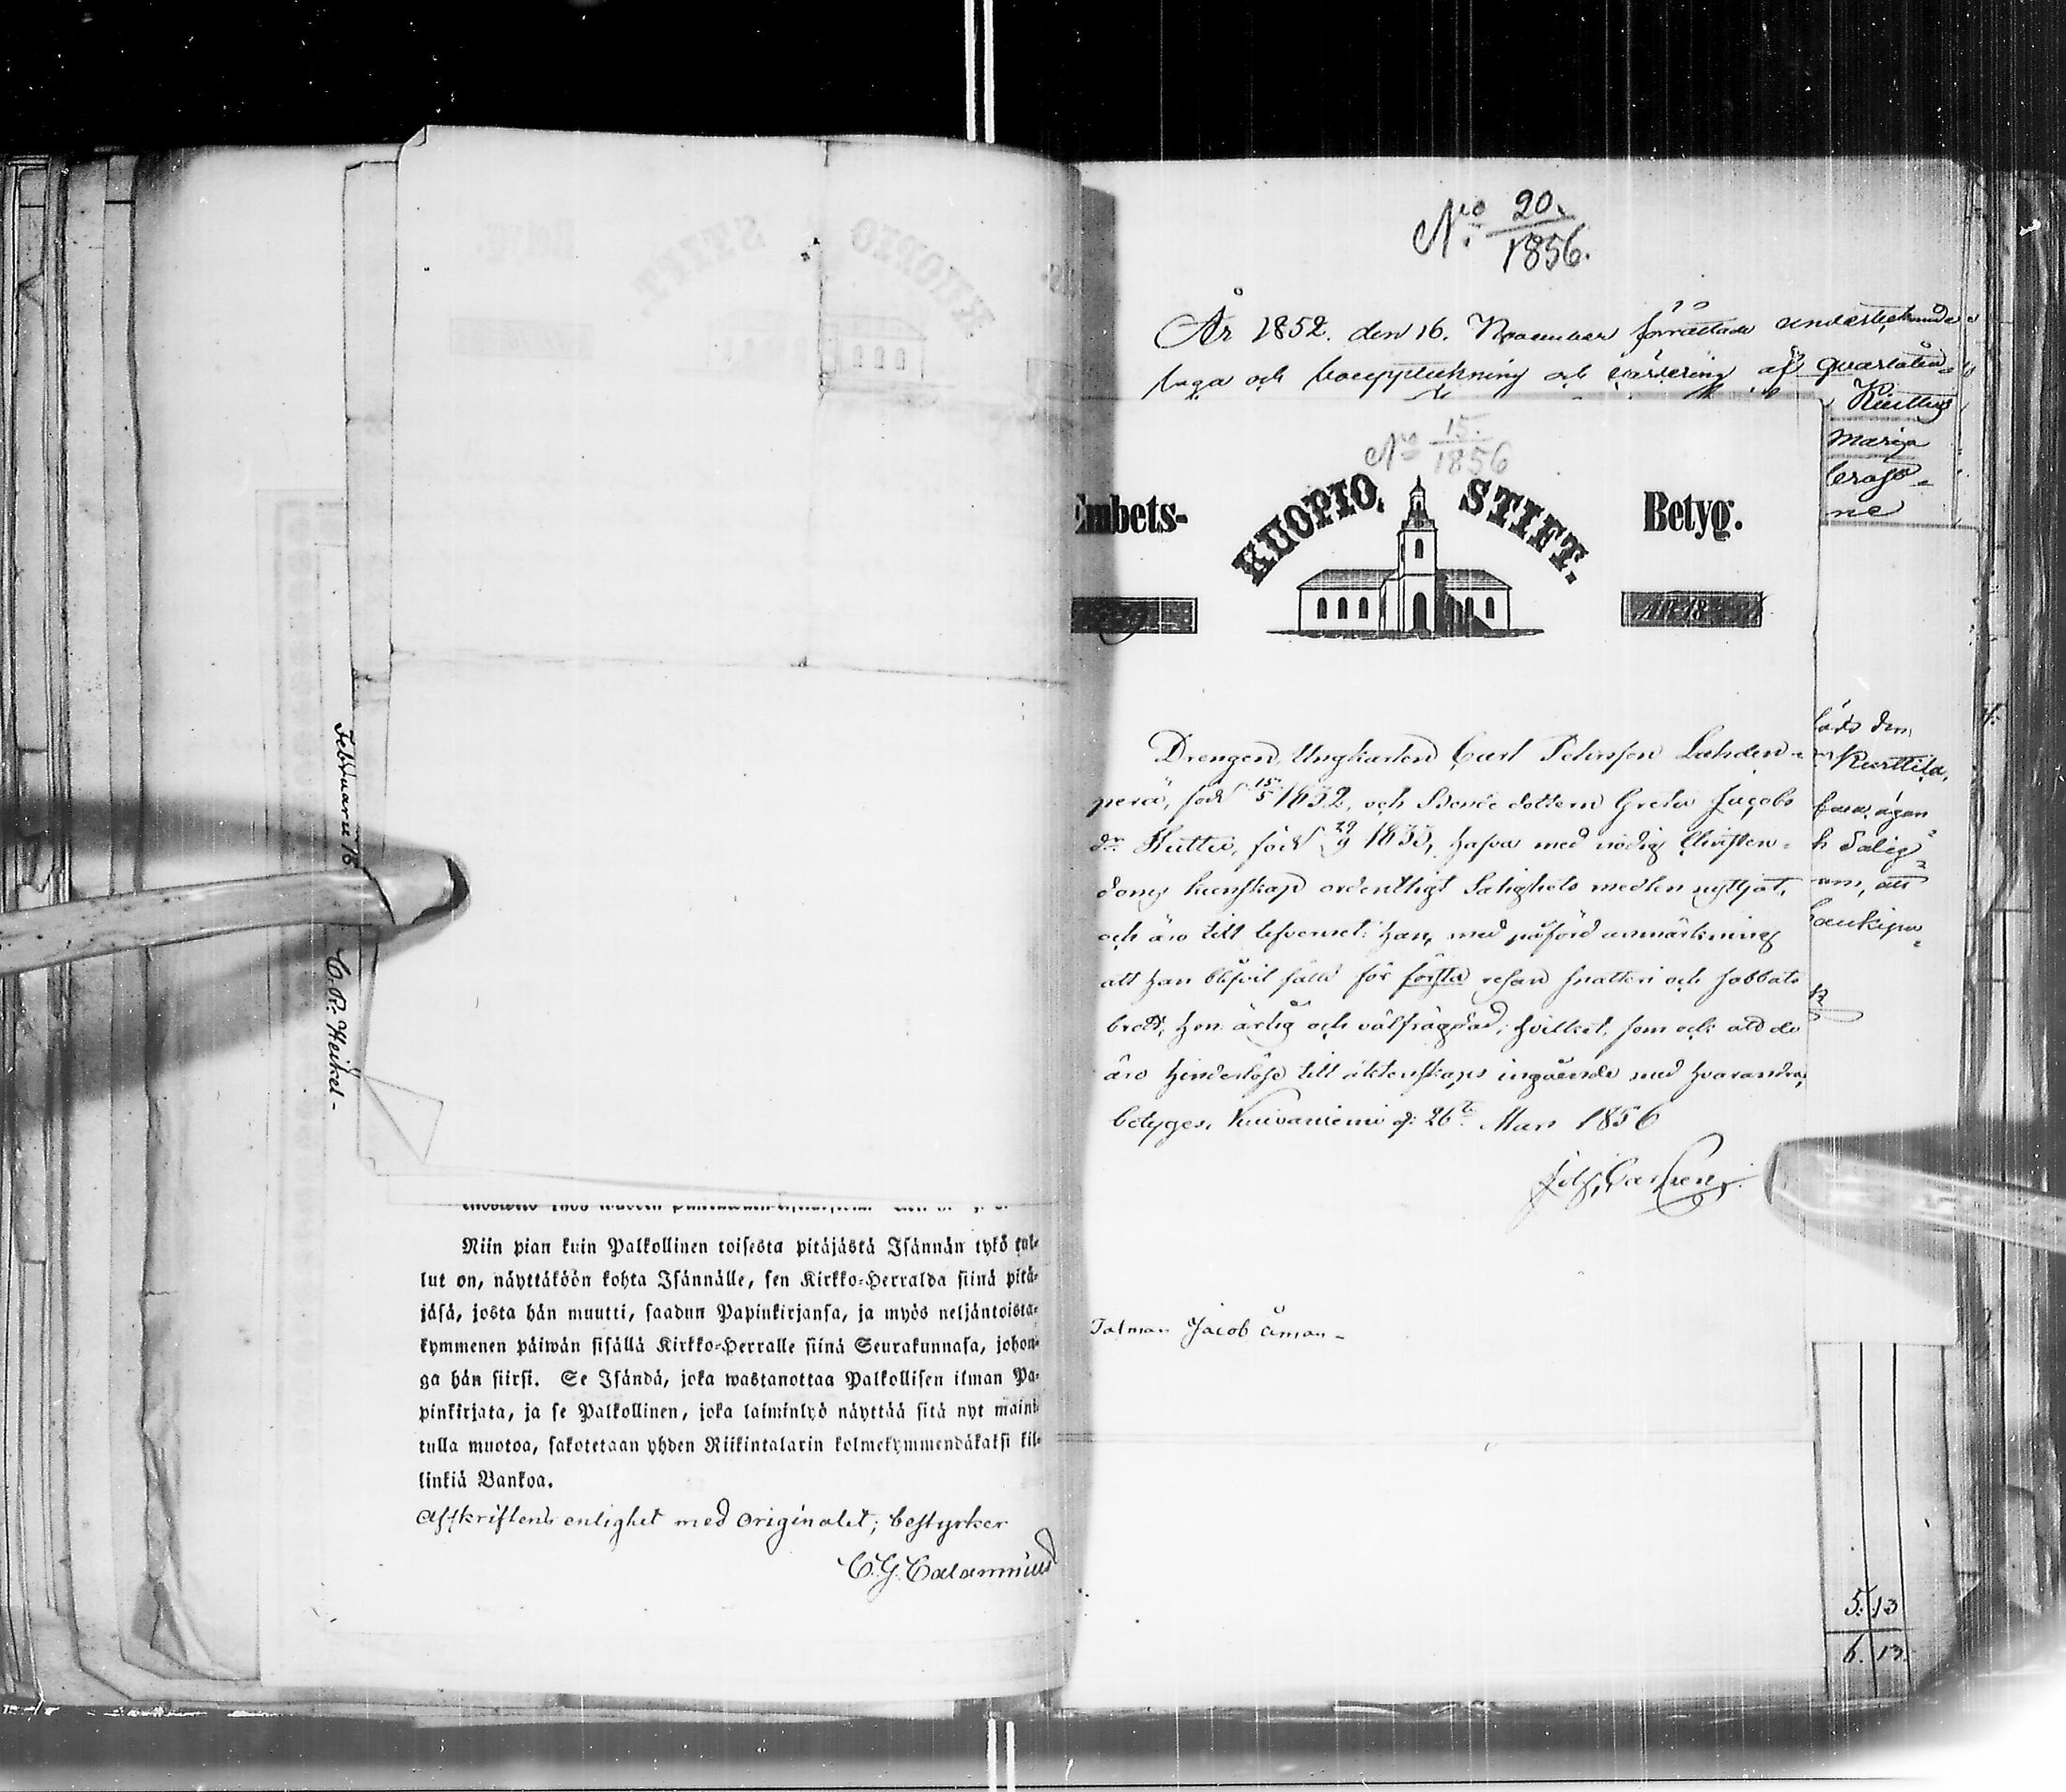 Februarii 16
C. R. Heikel-
Niin pian kuin Palkollinen toisesta pitäjästä Isännän tykö tul-
lut on, näyttäköön kohta Isännälle, sen Kirkko-Herralda siinä pitä-
jäsä, josta hän muutti, saadun Papinkirjansa, ja myös neljäntoista-
kymmenen päiwän sisällä Kirkko-Herralle siinä Seurakunnasa, johon-
ga hän siirsi. Se Isändä, joka wastanottaa Palkollisen ilman Pa-
pinkirjata, ja se Palkollinen, joka laiminlyö näyttää sitä nyt maini-
tulla muotoa, sakotetaan yhden Riikintalarin kolmekymmendäkaksi kil-
linkiä Bankoa.
Afskriftens enlighet med originalet; bestyrker
C. G. Calamnius
No 20.
1856.
År 1852. den 16. November förrättade undertecknade
laga och bouppteckning och värdering af qvarlåten-
Kurttus
Marija
ne
No 15.
1856
Embets-
KUOPIO STIFT.
Betyg.
ÅR 18
Drengen, Ungkarlen Carl Petersson Lahden-
perä, född 15/5 1832, och Bonde dottern Greta Jacobs
dr Kuttu, född 29/9 1835, hafva med nödig Christen-
doms kunskap ordentligt Salighets medlen nyttjat,
och äro till lefvernet: han, med påförd anmärkning
att han blifvit fälld för första resan snatteri och sabbats
brott, hon ärlig och välfrägdad; hvilket, som ock att de
äro hinderlöse till äktenskaps ingående med hvarandra,
betyges. Kuivaniemi d: 26te Mars 1856
Joh. Carlsén
Talman Jacob Åman-
Kurttila,
h salig
att
Haukipu
5. 13
6. 13.